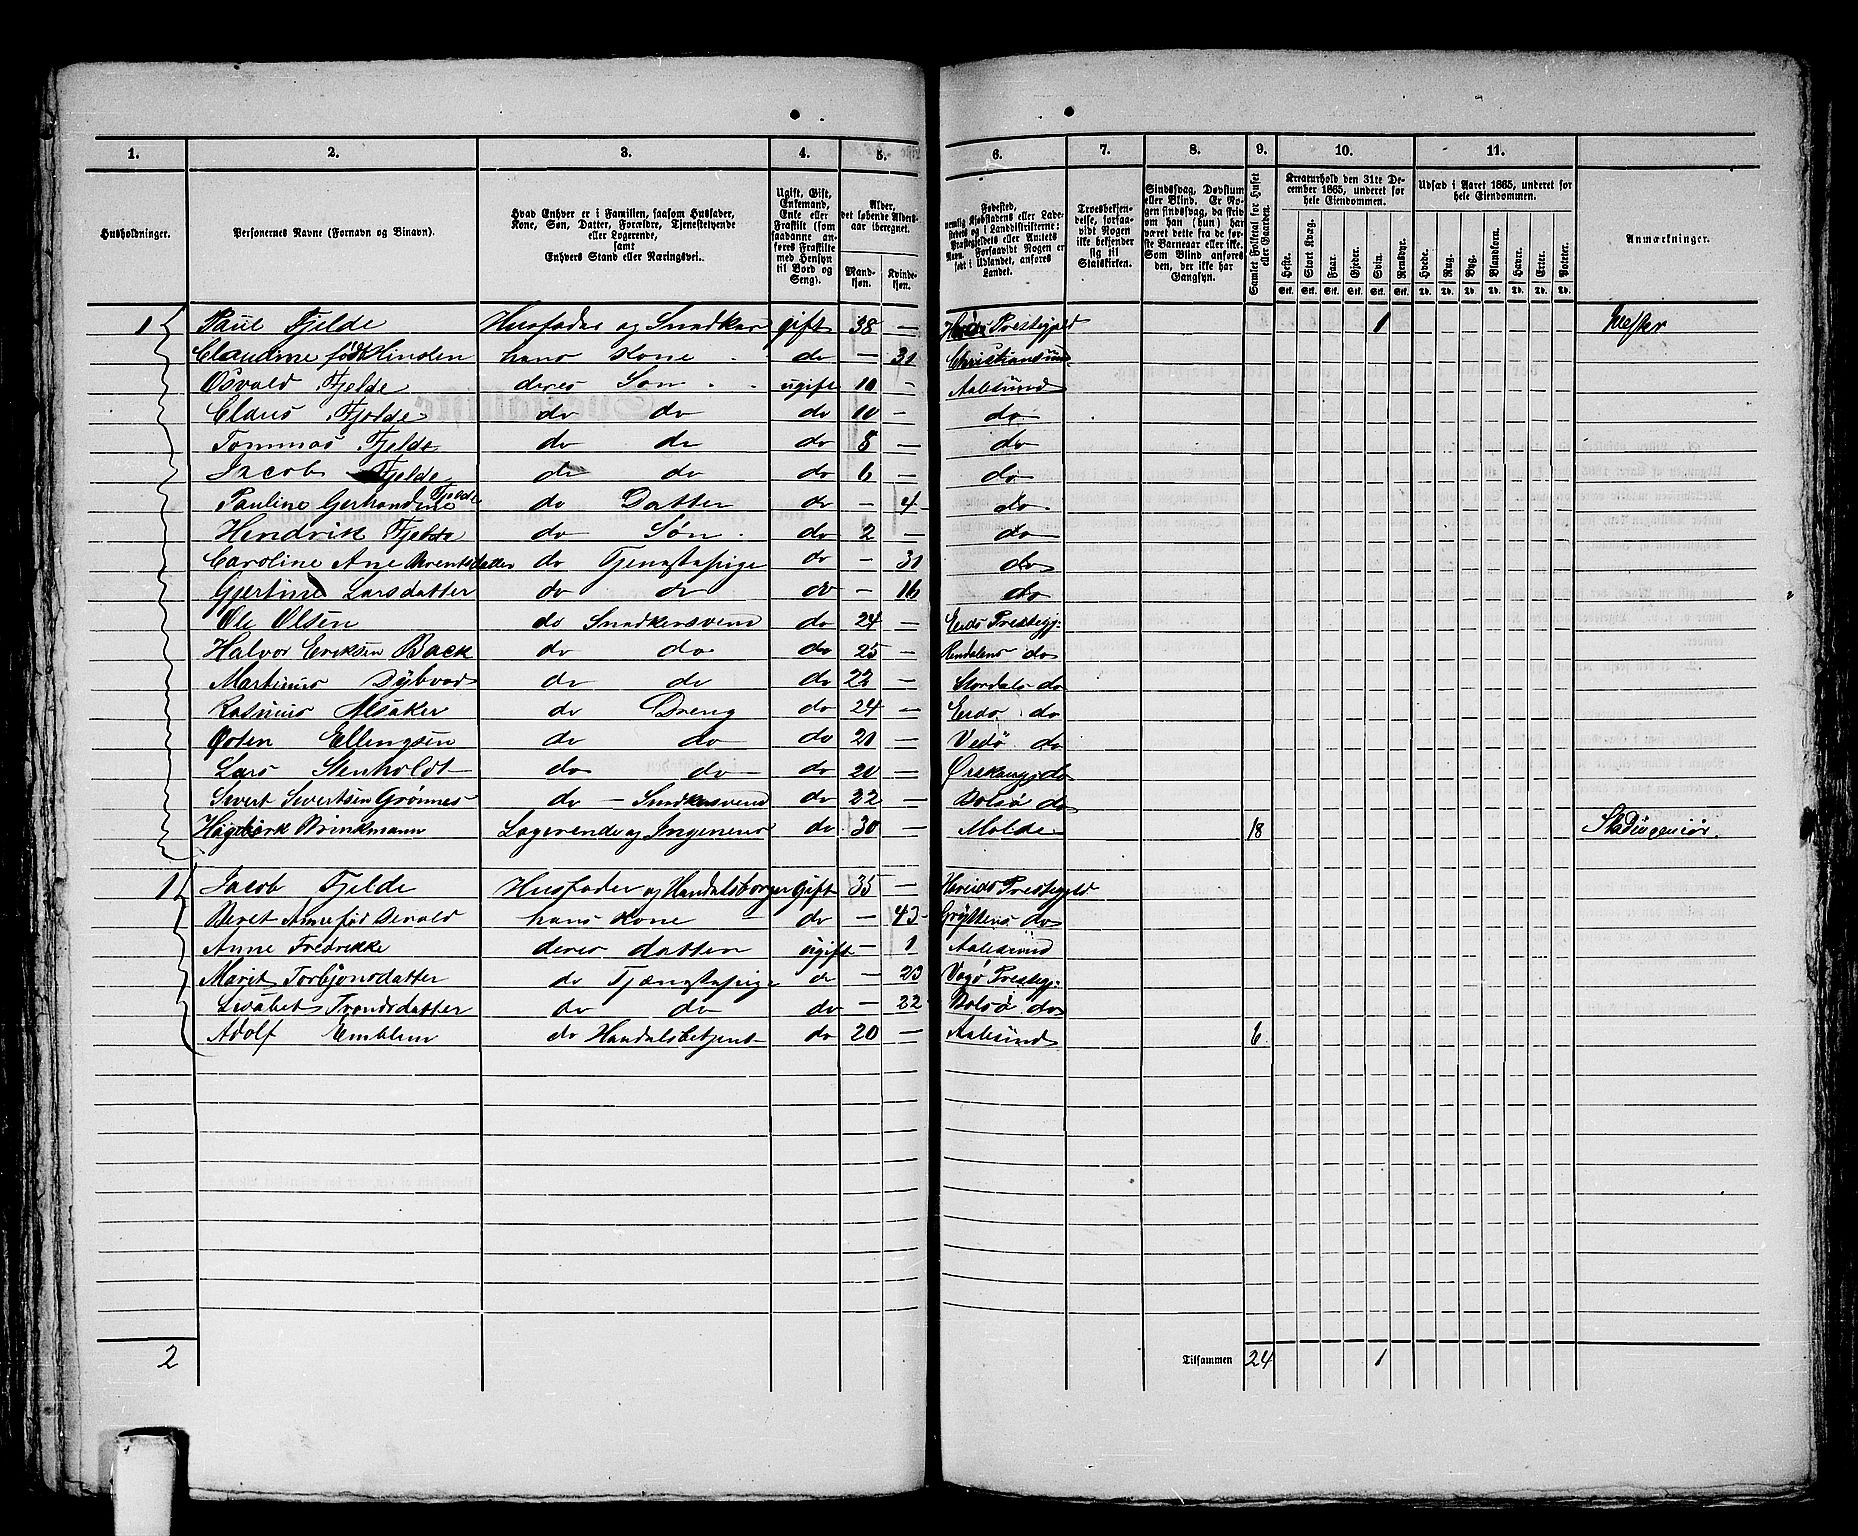 1. 2. 3. 4. 5. 6. 7. 8. 9. 10. 11.
Husholdninger.
Personernes Navne (Fornavn og Binavn).
Hvad Enhver er i Familien, saasom Husfader, Kone, Søn, Datter, Forældre, Tjenestetyende eller Logerende, samt Enhvers Stand eller Næringsvei.
Ugift, Gift, Enkemand, Enke eller Fraskilt (som saadanne anføres Fraskilte med Hensyn til Bord og Seng).
Alder, det løbende Alders-aar iberegnet.
Mand-kjøn. Kvinde-kjøn.
Fødested, nemlig Kjøbstadens eller Ladestedets og i Landdistrikterne: Præstegjeldets eller Amtets Navn. Forsaavidt Nogen er født i Udlandet, anføres Landet.
Troesbekjendelse, forsaavidt Nogen ikke bekjender sig til Statskirken.
Sindssvag, Døvstum eller Blind. Er Nogen sindssvag, da skriv om han (hun) har været dette fra de første Barneaar eller ikke. Som Blind anføres den, der ikke har Gangsyn.
Samlet Folketal for Huset eller Gaarden.
Kreaturhold den 31te December 1865, underet for hele Eiendommen.
Heste. Stort Kvæg. Faar. Gjeder. Svin. Rensdyr.
Stk. Stk. Stk. Stk. Stk. Stk.
Udsæd i Aaret 1865, underet for hele Eiendommen.
Hvede. Rug. Byg. Blandkorn. Havre. Erter. Poteter.
Td. Td. Td. Td. Td. Td. Td.
Anmærkninger.
1 Paul Fjelde Husfader og Snedker gift 38 — Prestegjeld 1 Mester
Claudine født Hinden hans Kone do — 31 Christiansund
Osvald Fjelde deres Søn ugift 10 — Aalesund
Claus Fjelde do do do 10 — do
Tommas Fjelde do do do 8 — do
Jacob Fjelde do do do 6 — do
Pauline Gerhardine Fjelde do Datter do — 4 do
Hendrik Fjelde do Søn do 2 — do
Caroline Ane Berntsdatter do Tjenestepige do — 31 do
Gjertine Larsdatter do do do — 16 do
Ole Olsen do Snedkersvend do 24 — Eids Prestegj.
Halvor Eriksen Back do do do 25 — Rendalens do
Martinus Dybvad do do do 22 — Stordals do
Rasmus Alsaker do Dreng do 24 — Eids do
Østen Ellingsen do do do 20 — Vedø do
Lars Stenholdt do do do 20 — Ørskougs do
Sivert Sivertsen Grønnes do — Snedkersvend do 22 — Bolsø do
Brinkmann Logerende og Ingeneur do 30 — Molde 18 Stadingeniør.
1 Jacob Fjelde Husfader og Handelsborger Gift 35 — Prestegjeld
Beret Anne født Devold hans Kone do — 43 Gryttens do
Anne Fredrikke deres datter ugift — 1 Aalesund
Marit Torbjonsdatter do Tjænestepige do — 23 Vågø Prestegj.
Lisabet Trondsdatter do do do — 22 Bolsø do
Adolf Emblem do Handelsbetjent do 20 — Aalesund 6
2 Tilsammen 24 1